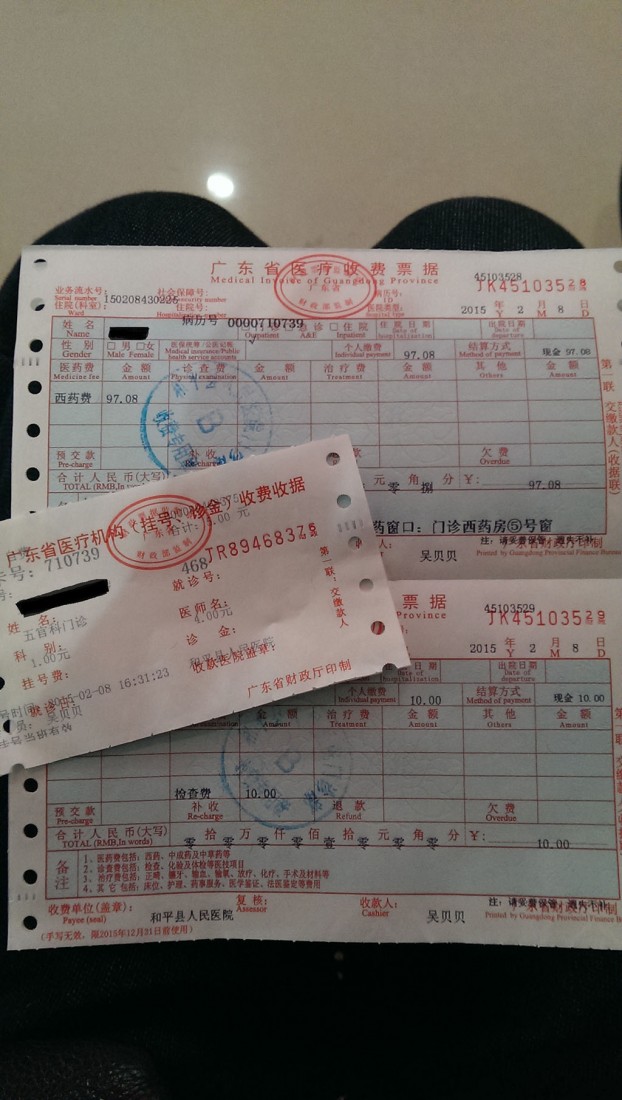 广东省医疗收费票据
Medical Invoice of Guangdong Province
45103528
JK45103528
业务流水号:
Serial number
150208430226
社会保障号:
住院(科室):
Ward
住院号:
医院类型:
2015 年 2 月 8 日
Y M D
姓名
Name
病历号 0000710739
住院日期
Date of hospitalization
出院日期
Date of departure
性别
Gender
男 女
Male Female
医保统筹/公医记账
Medical insurance/Public health service accounts
个人缴费
Individual payment
97.08
结算方式
Method of payment
现金 97.08
医药费 金额 诊查费 金额 治疗费 金额 其他 金额
Medicine fee Amount Physical examination Amount Treatment Amount Others Amount
西药费 97.08
预交款
Pre-charge
补收
欠费
Overdue
合计人民币(大写)
TOTAL (RMB,In words)
元 零 角 捌 分 ¥: 97.08
药窗口: 门诊西药房⑤号窗
吴贝贝
注: 请妥善保管 遗失不补
广东省财政厅印制
Printed by Guangdong Provincial Finance Bureau
第一联 交缴款人(收据联)
广东省医疗机构(挂号、诊金)收费收据
710739
468
JR89468375
姓名:
就诊号:
五官科门诊
科别:
医师名:
4.00元
1.00元
诊金:
挂号费:
和平县人民医院
收款医院盖章:
2015-02-08 16:31:23
吴贝贝
挂号当班有效
广东省财政厅印制
第一联:交缴款人
票据
Province
45103529
JK45103529
2015 年 2 月 8 日
Y M D
出院日期
Date of departure
个人缴费
Individual payment
10.00
结算方式
Method of payment
现金 10.00
金额 治疗费 金额 其他 金额
Amount Treatment Amount Others Amount
检查费 10.00
预交款
Pre-charge
补收
Re-charge
退款
Refund
欠费
Overdue
合计人民币(大写)
TOTAL (RMB,In words)
零 拾 零 万 零 仟 零 佰 壹 拾 零 元 零 角 零 分 ¥: 10.00
备注
1、医药费包括:西药、中成药及中草药等
2、诊查费包括:检查、化验及体检等医技项目
3、治疗费包括:正畸、镶牙、输血、输氧、放疗、化疗、手术及材料等
4、其它包括:床位、护理、药事服务、医学鉴证、法医鉴定等费用
收费单位(盖章):
Payee (seal)
和平县人民医院
复核:
Assessor
收款人:
Cashier
吴贝贝
注: 请妥善保管 遗失不补
Printed by Guangdong Provincial Finance
(手写无效,限2015年12月31日前使用)